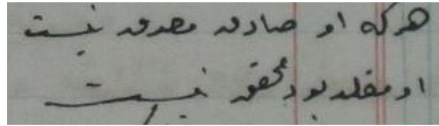 هر که او صادق مصدق نیست
او مقلد بود محقق نیست